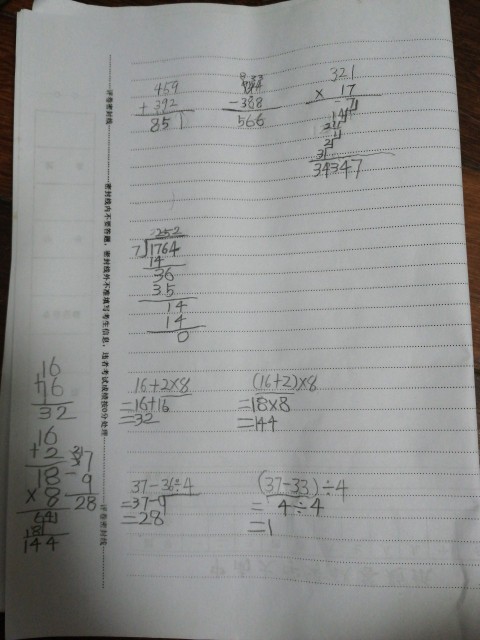 459
+ 392
851
- 388
566
321
× 17
34347
252
7 1764
14
36
35
14
14
0
16+2×8
=16+16
=32
(16+2)×8
=18×8
=144
37-36÷4
=37-9
=28
(37-33)÷4
= 4÷4
=1
16
+16
32
16
+ 2
18
× 8
144
37
- 9
28
评卷密封线 密封线内不要答题,密封线外不准填写考生信息,违者考试成绩按0分处理 评卷密封线